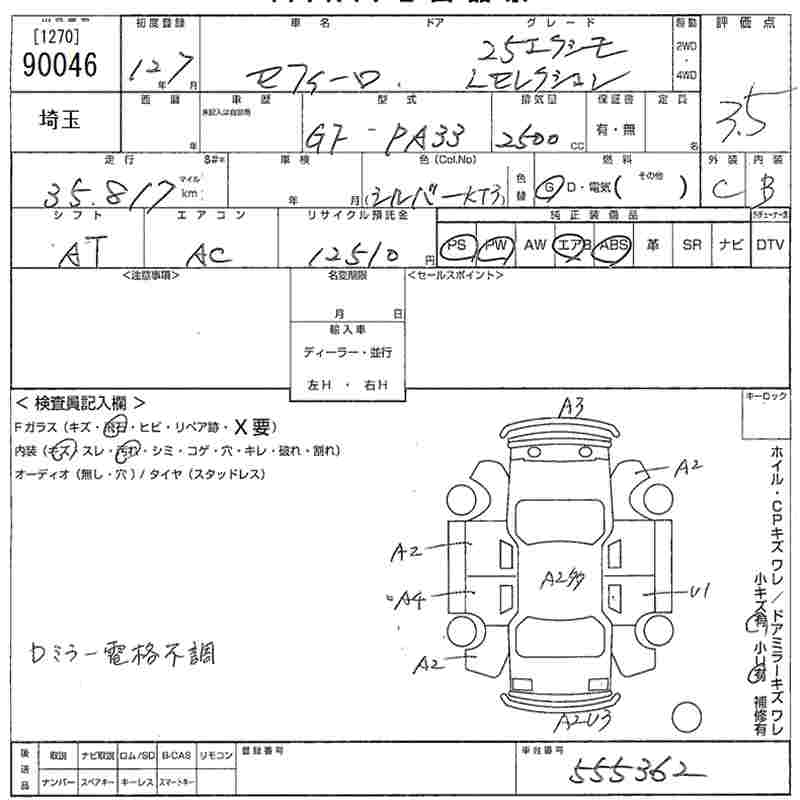 [1270]
90046
初度登録
12年7月
車名
セフィーロ
ドア
グレード
25エクシモ
Lセレクション
駆動
2WD
・
4WD
評価点
3.5
埼玉
西暦
年
車歴
未記入は自家用
型式
GF-PA33
排気量
2500 CC
保証書
有・無
定員
名
走行
35.817
マイル
km
車検
年 月
色(Col.No)
(シルバーKT3)
色替
燃料
G D・電気( その他 )
外装
C
内装
B
シフト
AT
エアコン
AC
リサイクル預託金
12510円
純正装備品
PS PW AW エアB ABS 革 SR ナビ DTV
<注意事項>
名変期限
月 日
輸入車
ディーラー・並行
左H ・ 右H
<セールスポイント>
<検査員記入欄>
Fガラス(キズ・飛石・ヒビ・リペア跡・X要)
内装(キズ/スレ・汚れ・シミ・コゲ・穴・キレ・破れ・割れ)
オーディオ(無し・穴)/タイヤ(スタッドレス)
キーロック
A3
A2
A2
A2多
A4
U1
A2
A2U3
Dミラー電格不調
ホイル・CPキズワレ/ドアミラーキズワレ
小キズ有 小U有 補修有
後送品
取説 ナビ取説 ロム/SD B-CAS リモコン
ナンバー スペアキー キーレス スマートキー
登録番号
車台番号
555362